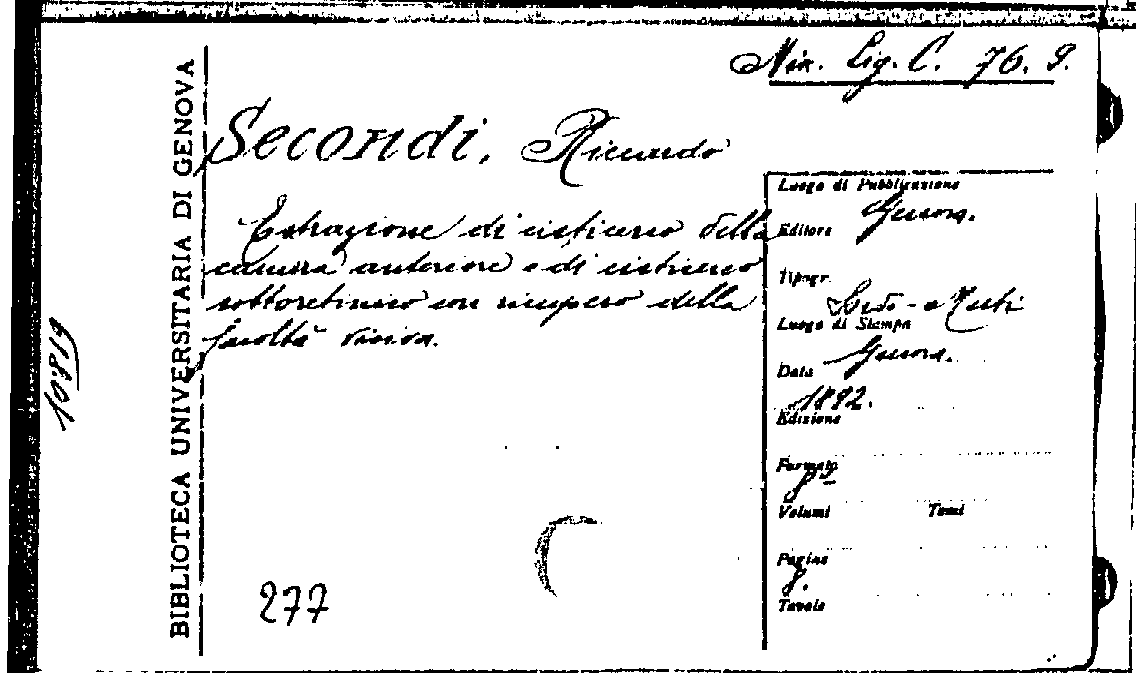 Mis. Lig. C. 76. 9.
Secondi, Riccardo
Estrazione di cisticerco della
camera anteriore e di cisticerco
sottoretinico con ricupero della
facoltà visiva.
BIBLIOTECA UNIVERSITARIA DI GENOVA
10819
277
Luogo di Pubblicazione
Genova.
Editore
Tipogr.
Luogo di Stampa
Genova.
Data
1892.
Edizione
Formato
8º
Volumi Tomi
Pagine
8.
Tavole